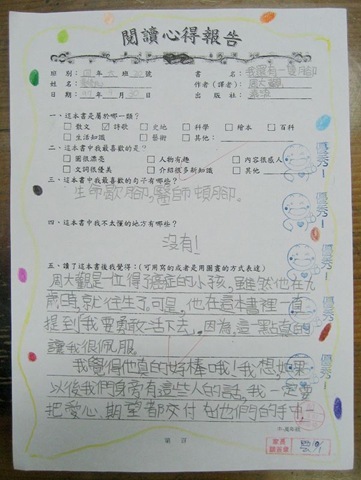 閱讀心得報告
班別：四年 班 20號
書名：我還有一隻腳
姓名：
作者(譯者)：周大觀
日期： 年 月 30日
出版社：遠流
一、這本書是屬於哪一類？
□散文 ☑詩歌 □史地 □科學 □繪本 □百科
□生活知識 □藝術 □其他：
二、這本書中我最喜歡的是"
□圖很漂亮 □人物有趣 □內容很感人
□文詞很優美 □介紹很多新知識 □其他：
三、這本書中我最喜歡的句子有哪些？
生命歌腳，醫師頓腳。
四、這本書中我不太懂的地方有哪些？
沒有！
五、讀了這本書後我覺得：(可用寫的或者是用圖畫的方式表達)
周大觀是一位得了癌症的小孩，雖然他在九
歲 就往生了。可是，他在這本書裡一直
提到「我要勇敢活下去」，因為這一點真的
讓我很佩服。
我覺得他真的好棒哦！我想，如果
以後我們身旁有這些人的話，我一定要
把愛心、期望都交付在他們的手中。
優秀！
優秀！
優秀！
優秀！
家長